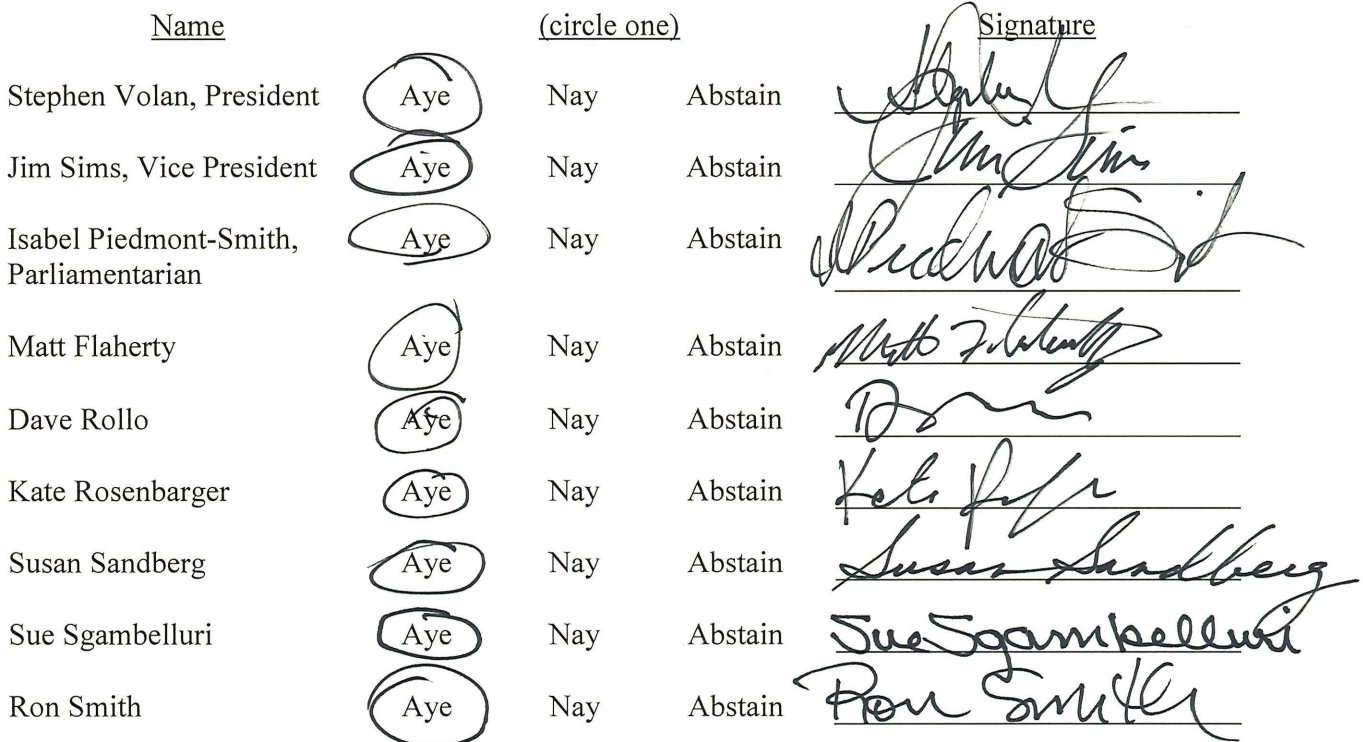 Name (circle one) Signature
Stephen Volan, President Aye Nay Abstain
Jim Sims, Vice President Aye Nay Abstain Jim Sims
Isabel Piedmont-Smith, Aye Nay Abstain
Parliamentarian
Matt Flaherty Aye Nay Abstain Matt Flaherty
Dave Rollo Aye Nay Abstain
Kate Rosenbarger Aye Nay Abstain Kate
Susan Sandberg Aye Nay Abstain Susan Sandberg
Sue Sgambelluri Aye Nay Abstain Sue Sgambelluri
Ron Smith Aye Nay Abstain Ron Smith